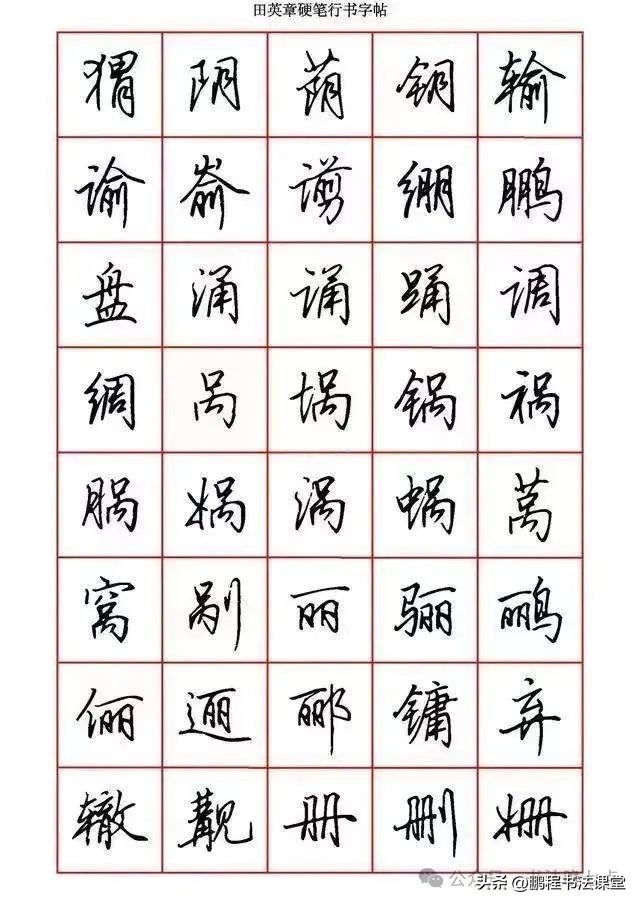 田英章硬笔行书字帖
猬 阴 荫 钥 输
谕 嵛 谫 绷 鹏
盘 涌 诵 踊 调
绸 呙 埚 锅 祸
脶 娲 涡 蜗 莴
窝 剐 丽 骊 鹂
俪 逦 郦 镛 弃
辙 觏 册 删 姗
头条@鹏程书法课堂